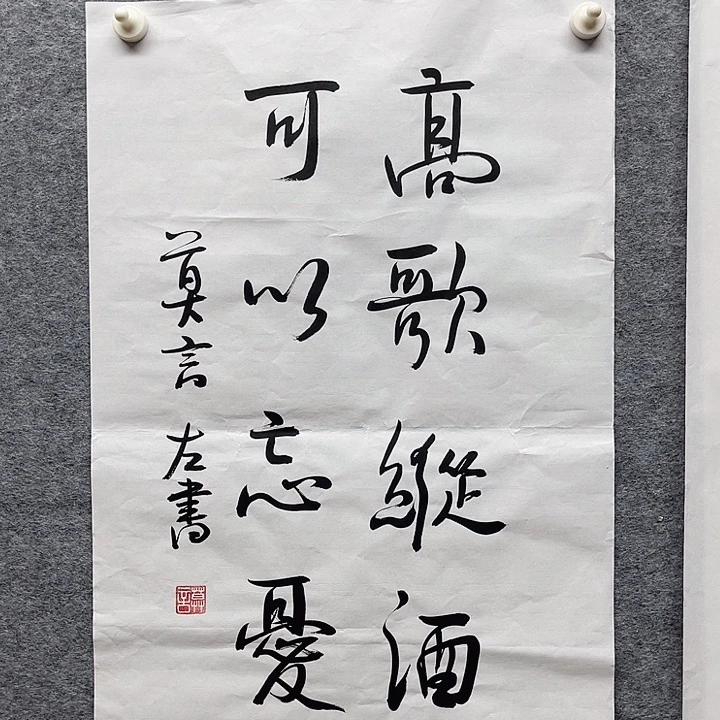 高歌縱酒
可以忘憂
莫言左書
莫言